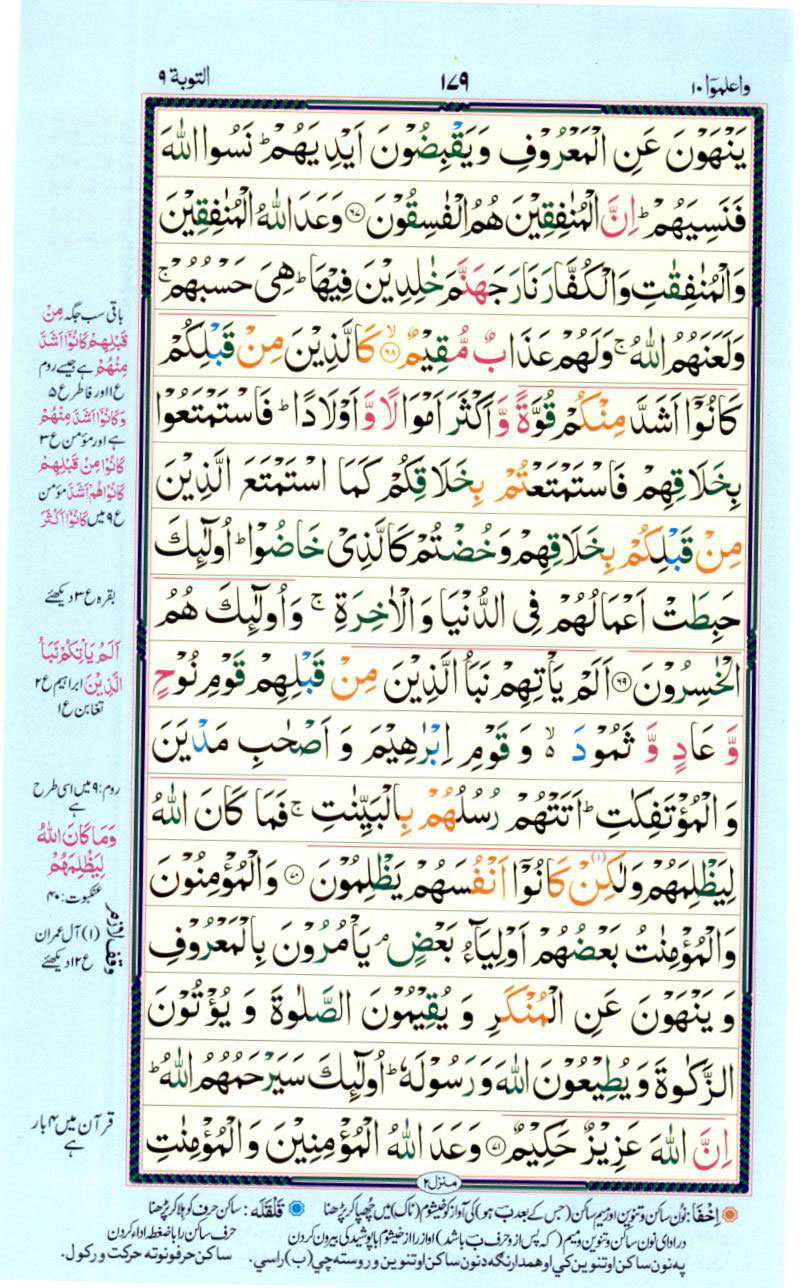 واعلموٓا ١٠
١٧٩
التوبة ٩
يَنْهَوْنَ عَنِ الْمَعْرُوْفِ وَيَقْبِضُوْنَ اَيْدِيَهُمْ ؕ نَسُوا اللّٰهَ
فَنَسِيَهُمْ ؕ اِنَّ الْمُنٰفِقِيْنَ هُمُ الْفٰسِقُوْنَ ۝۶۷ وَعَدَ اللّٰهُ الْمُنٰفِقِيْنَ
وَالْمُنٰفِقٰتِ وَالْكُفَّارَ نَارَ جَهَنَّمَ خٰلِدِيْنَ فِيْهَا ؕ هِيَ حَسْبُهُمْ ۚ
وَلَعَنَهُمُ اللّٰهُ ۚ وَلَهُمْ عَذَابٌ مُّقِيْمٌ ۝۶۸ۙ كَالَّذِيْنَ مِنْ قَبْلِكُمْ
كَانُوْۤا اَشَدَّ مِنْكُمْ قُوَّةً وَّ اَكْثَرَ اَمْوَالًا وَّ اَوْلَادًا ؕ فَاسْتَمْتَعُوْا
بِخَلَاقِهِمْ فَاسْتَمْتَعْتُمْ بِخَلَاقِكُمْ كَمَا اسْتَمْتَعَ الَّذِيْنَ
مِنْ قَبْلِكُمْ بِخَلَاقِهِمْ وَخُضْتُمْ كَالَّذِيْ خَاضُوْا ؕ اُولٰٓئِكَ
حَبِطَتْ اَعْمَالُهُمْ فِي الدُّنْيَا وَالْاٰخِرَةِ ۚ وَاُولٰٓئِكَ هُمُ
الْخٰسِرُوْنَ ۝۶۹ اَلَمْ يَاْتِهِمْ نَبَاُ الَّذِيْنَ مِنْ قَبْلِهِمْ قَوْمِ نُوْحٍ
وَّ عَادٍ وَّ ثَمُوْدَ ۙ۬ وَ قَوْمِ اِبْرٰهِيْمَ وَ اَصْحٰبِ مَدْيَنَ
وَ الْمُؤْتَفِكٰتِ ؕ اَتَتْهُمْ رُسُلُهُمْ بِالْبَيِّنٰتِ ۚ فَمَا كَانَ اللّٰهُ
لِيَظْلِمَهُمْ وَلٰكِنْ كَانُوْۤا (١) اَنْفُسَهُمْ يَظْلِمُوْنَ ۝۷۰ وَالْمُؤْمِنُوْنَ
وَالْمُؤْمِنٰتُ بَعْضُهُمْ اَوْلِيَآءُ بَعْضٍ ۘ يَاْمُرُوْنَ بِالْمَعْرُوْفِ
وَ يَنْهَوْنَ عَنِ الْمُنْكَرِ وَ يُقِيْمُوْنَ الصَّلٰوةَ وَ يُؤْتُوْنَ
الزَّكٰوةَ وَ يُطِيْعُوْنَ اللّٰهَ وَ رَسُوْلَهٗ ؕ اُولٰٓئِكَ سَيَرْحَمُهُمُ اللّٰهُ ؕ
اِنَّ اللّٰهَ عَزِيْزٌ حَكِيْمٌ ۝۷۱ وَعَدَ اللّٰهُ الْمُؤْمِنِيْنَ وَالْمُؤْمِنٰتِ
منزل ۲
باقی سب جگہ مِنْ
قَبْلِهِمْ كَانُوْۤا اَشَدَّ
مِنْهُمْ ہے جیسے روم
ع ۱ اور فاطر ع ۵
وَكَانُوْۤا اَشَدَّ مِنْهُمْ
ہے اور مؤمن ع ۳
كَانُوْا مِنْ قَبْلِهِمْ
كَانُوْا هُمْ اَشَدَّ مؤمن
ع ۹ میں كَانُوْۤا اَكْثَرَ
بقرہ ع ۳ دیکھئے
اَلَمْ يَاْتِكُمْ نَبَاُ
الَّذِيْنَ ابراہیم ع ۲
تغابن ع ۱
روم: ۹ میں اسی طرح
ہے
وَمَا كَانَ اللّٰهُ
لِيَظْلِمَهُمْ
عنکبوت: ۴۰
وقف لازم
(۱) آل عمران
ع ۱۲ دیکھئے
قرآن میں ۴ بار
ہے
اِخْفَا: نون ساکن و تنوین اور میم ساکن (جس کے بعد ب ہو) کی آواز کو خیشوم (ناک) میں چھپا کر پڑھنا
قَلْقَلَہ: ساکن حرف کو ہلا کر پڑھنا
در ادای نون ساکن و تنوین و میم (که پس از و حرف ب باشد) اواز را از خیشوم با پوشیدگی بیرون کردن
حرف ساکن را باضغطه اداء کردن
په نون ساکن او تنوین کی او همدارنگه د نون ساکن او تنوین و روسته چی (ب) راسی.
ساکن حرفونو ته حرکت ورکول.